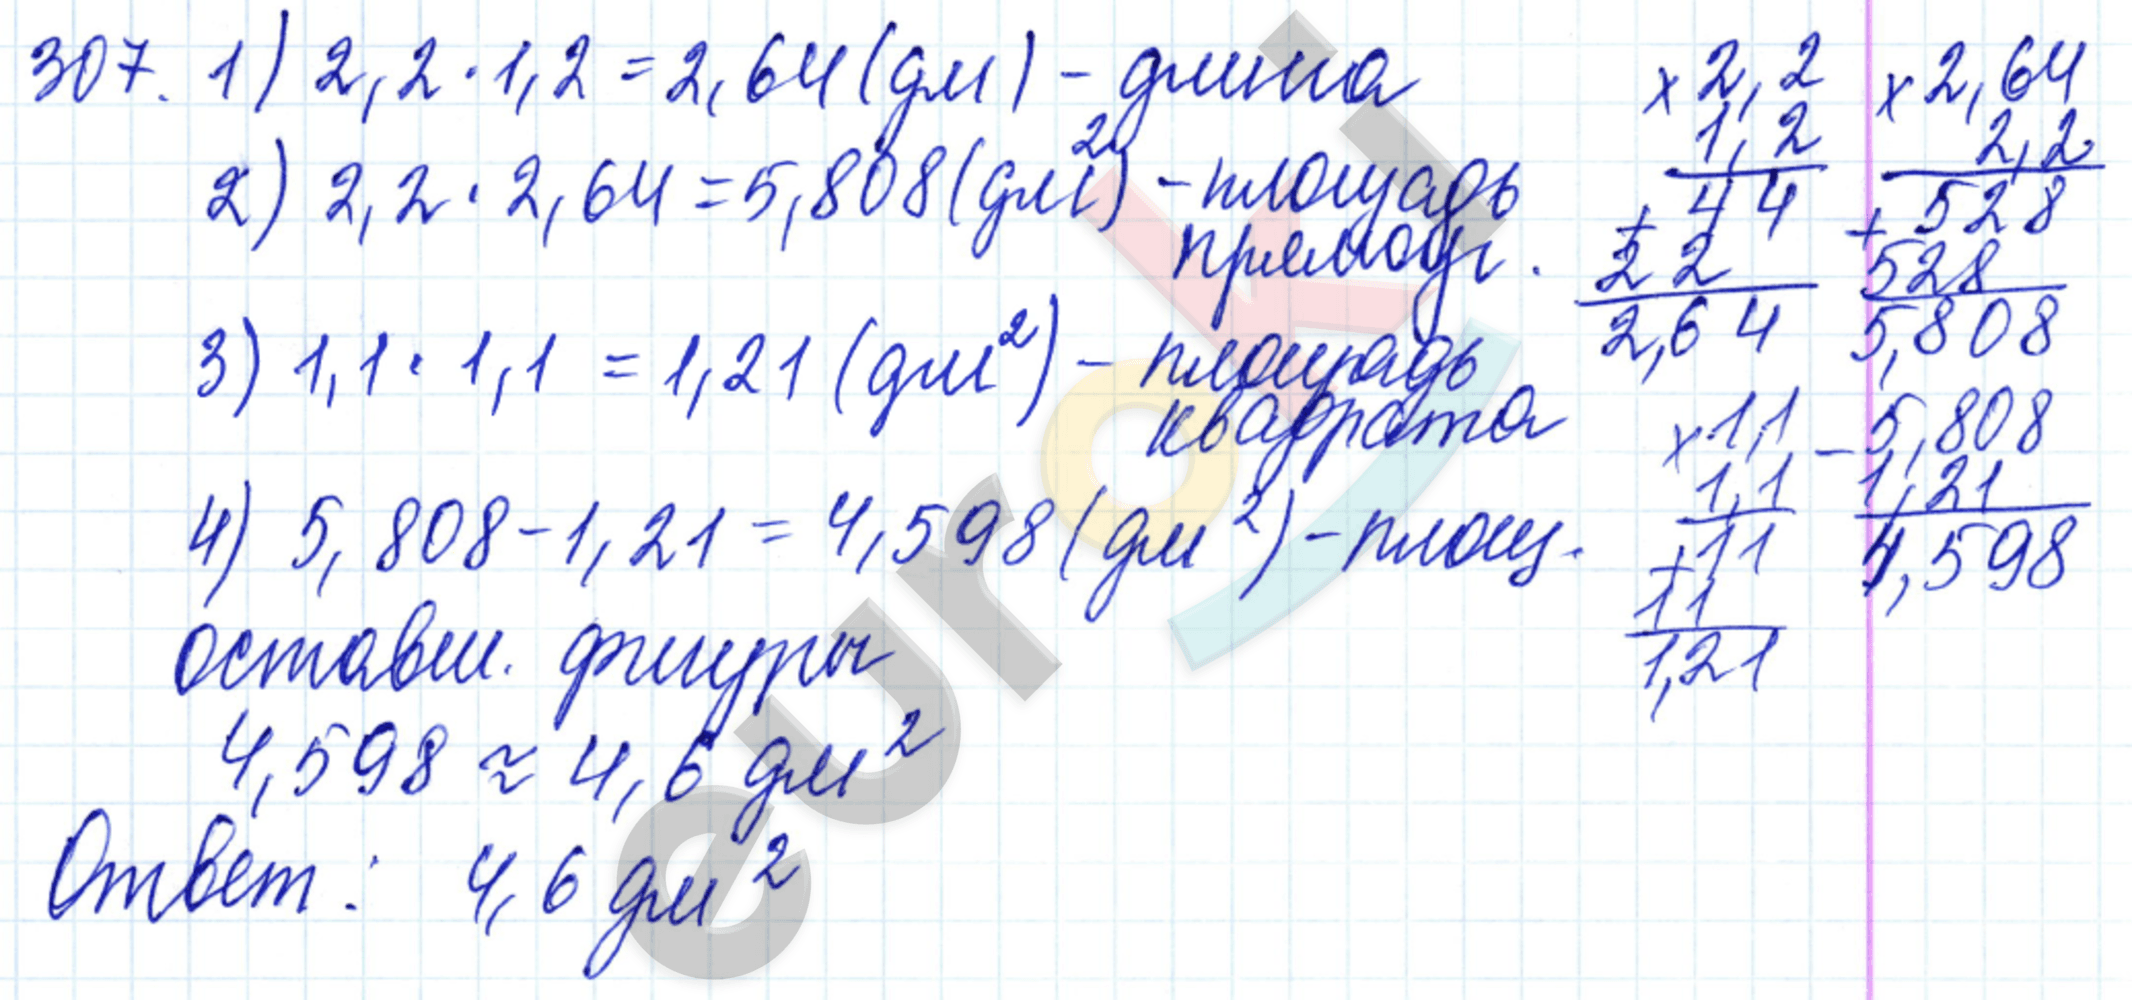 307. 1) 2,2 · 1,2 = 2,64 (дм) - длина
2) 2,2 · 2,64 = 5,808 (дм²) - площадь
прямоуг.
3) 1,1 · 1,1 = 1,21 (дм²) - площадь
квадрата
4) 5,808 - 1,21 = 4,598 (дм²) - площ.
оставш. фигуры
4,598 ≈ 4,6 дм²
Ответ: 4,6 дм²
× 2,2
1,2
+ 44
22
2,64
× 2,64
2,2
+ 528
528
5,808
× 1,1
1,1
+ 11
11
1,21
- 5,808
1,21
4,598
euroki